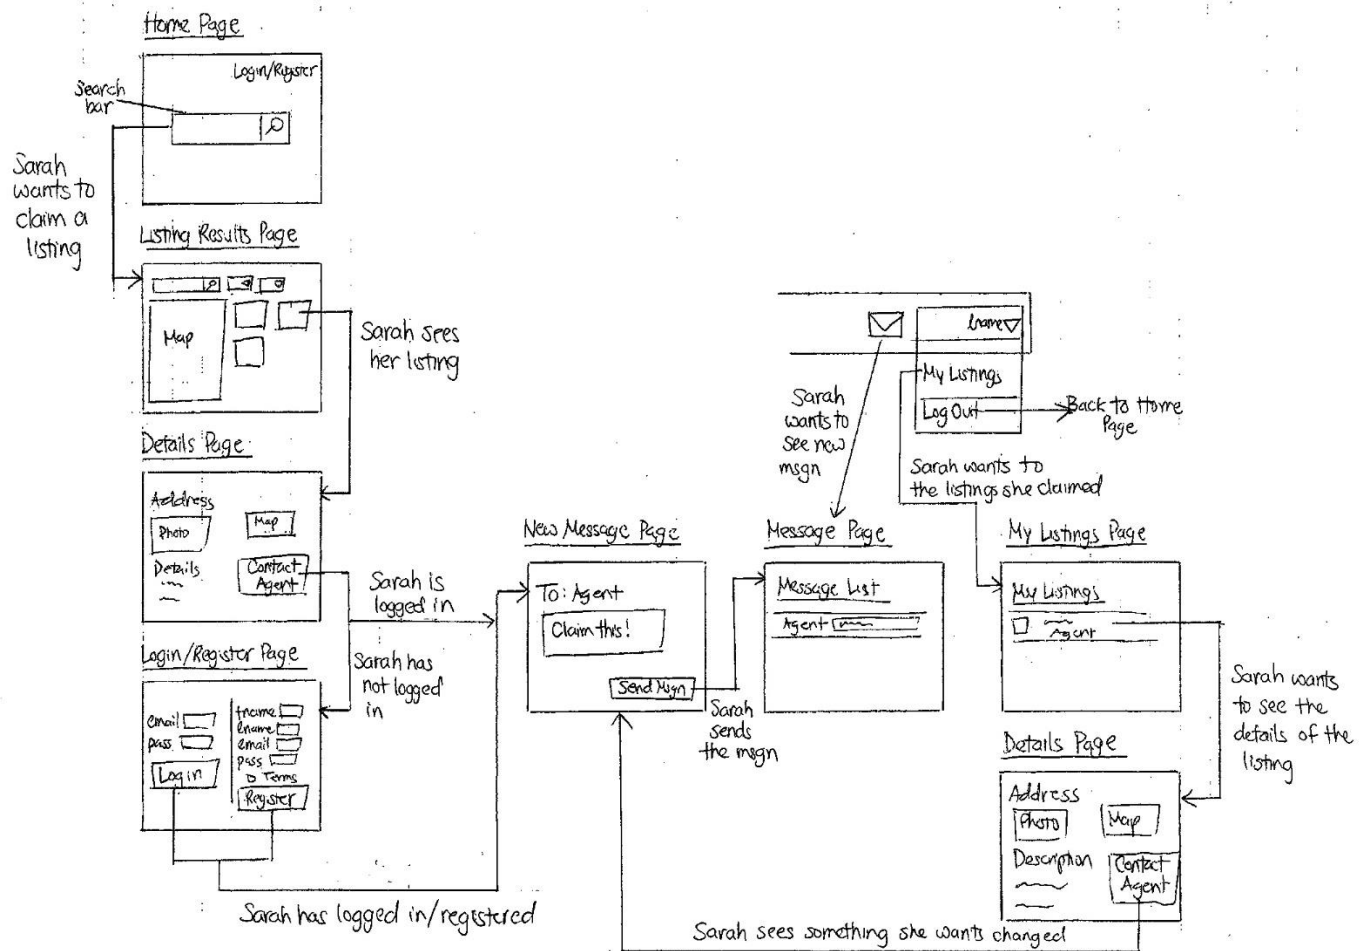 Home Page
Login/Register
Search
bar
Sarah
wants to
claim a
listing
Listing Results Page
Map
Sarah sees
her listing
Details Page
Address
Photo
Map
Details
Contact
Agent
Sarah is
logged in
Sarah has
not logged
in
Login/Register Page
email
pass
Log in
fname
lname
email
pass
Terms
Register
Sarah has logged in/registered
New Message Page
To: Agent
Claim this!
Send Msgn
Sarah
sends
the msgn
lname
My Listings
Log Out
Back to Home
Page
Sarah
wants to
see new
msgn
Sarah wants to
the listings she claimed
Message Page
Message List
Agent
My Listings Page
My Listings
Agent
Sarah wants
to see the
details of the
listing
Details Page
Address
Photo
Map
Description
Contact
Agent
Sarah sees something she wants changed